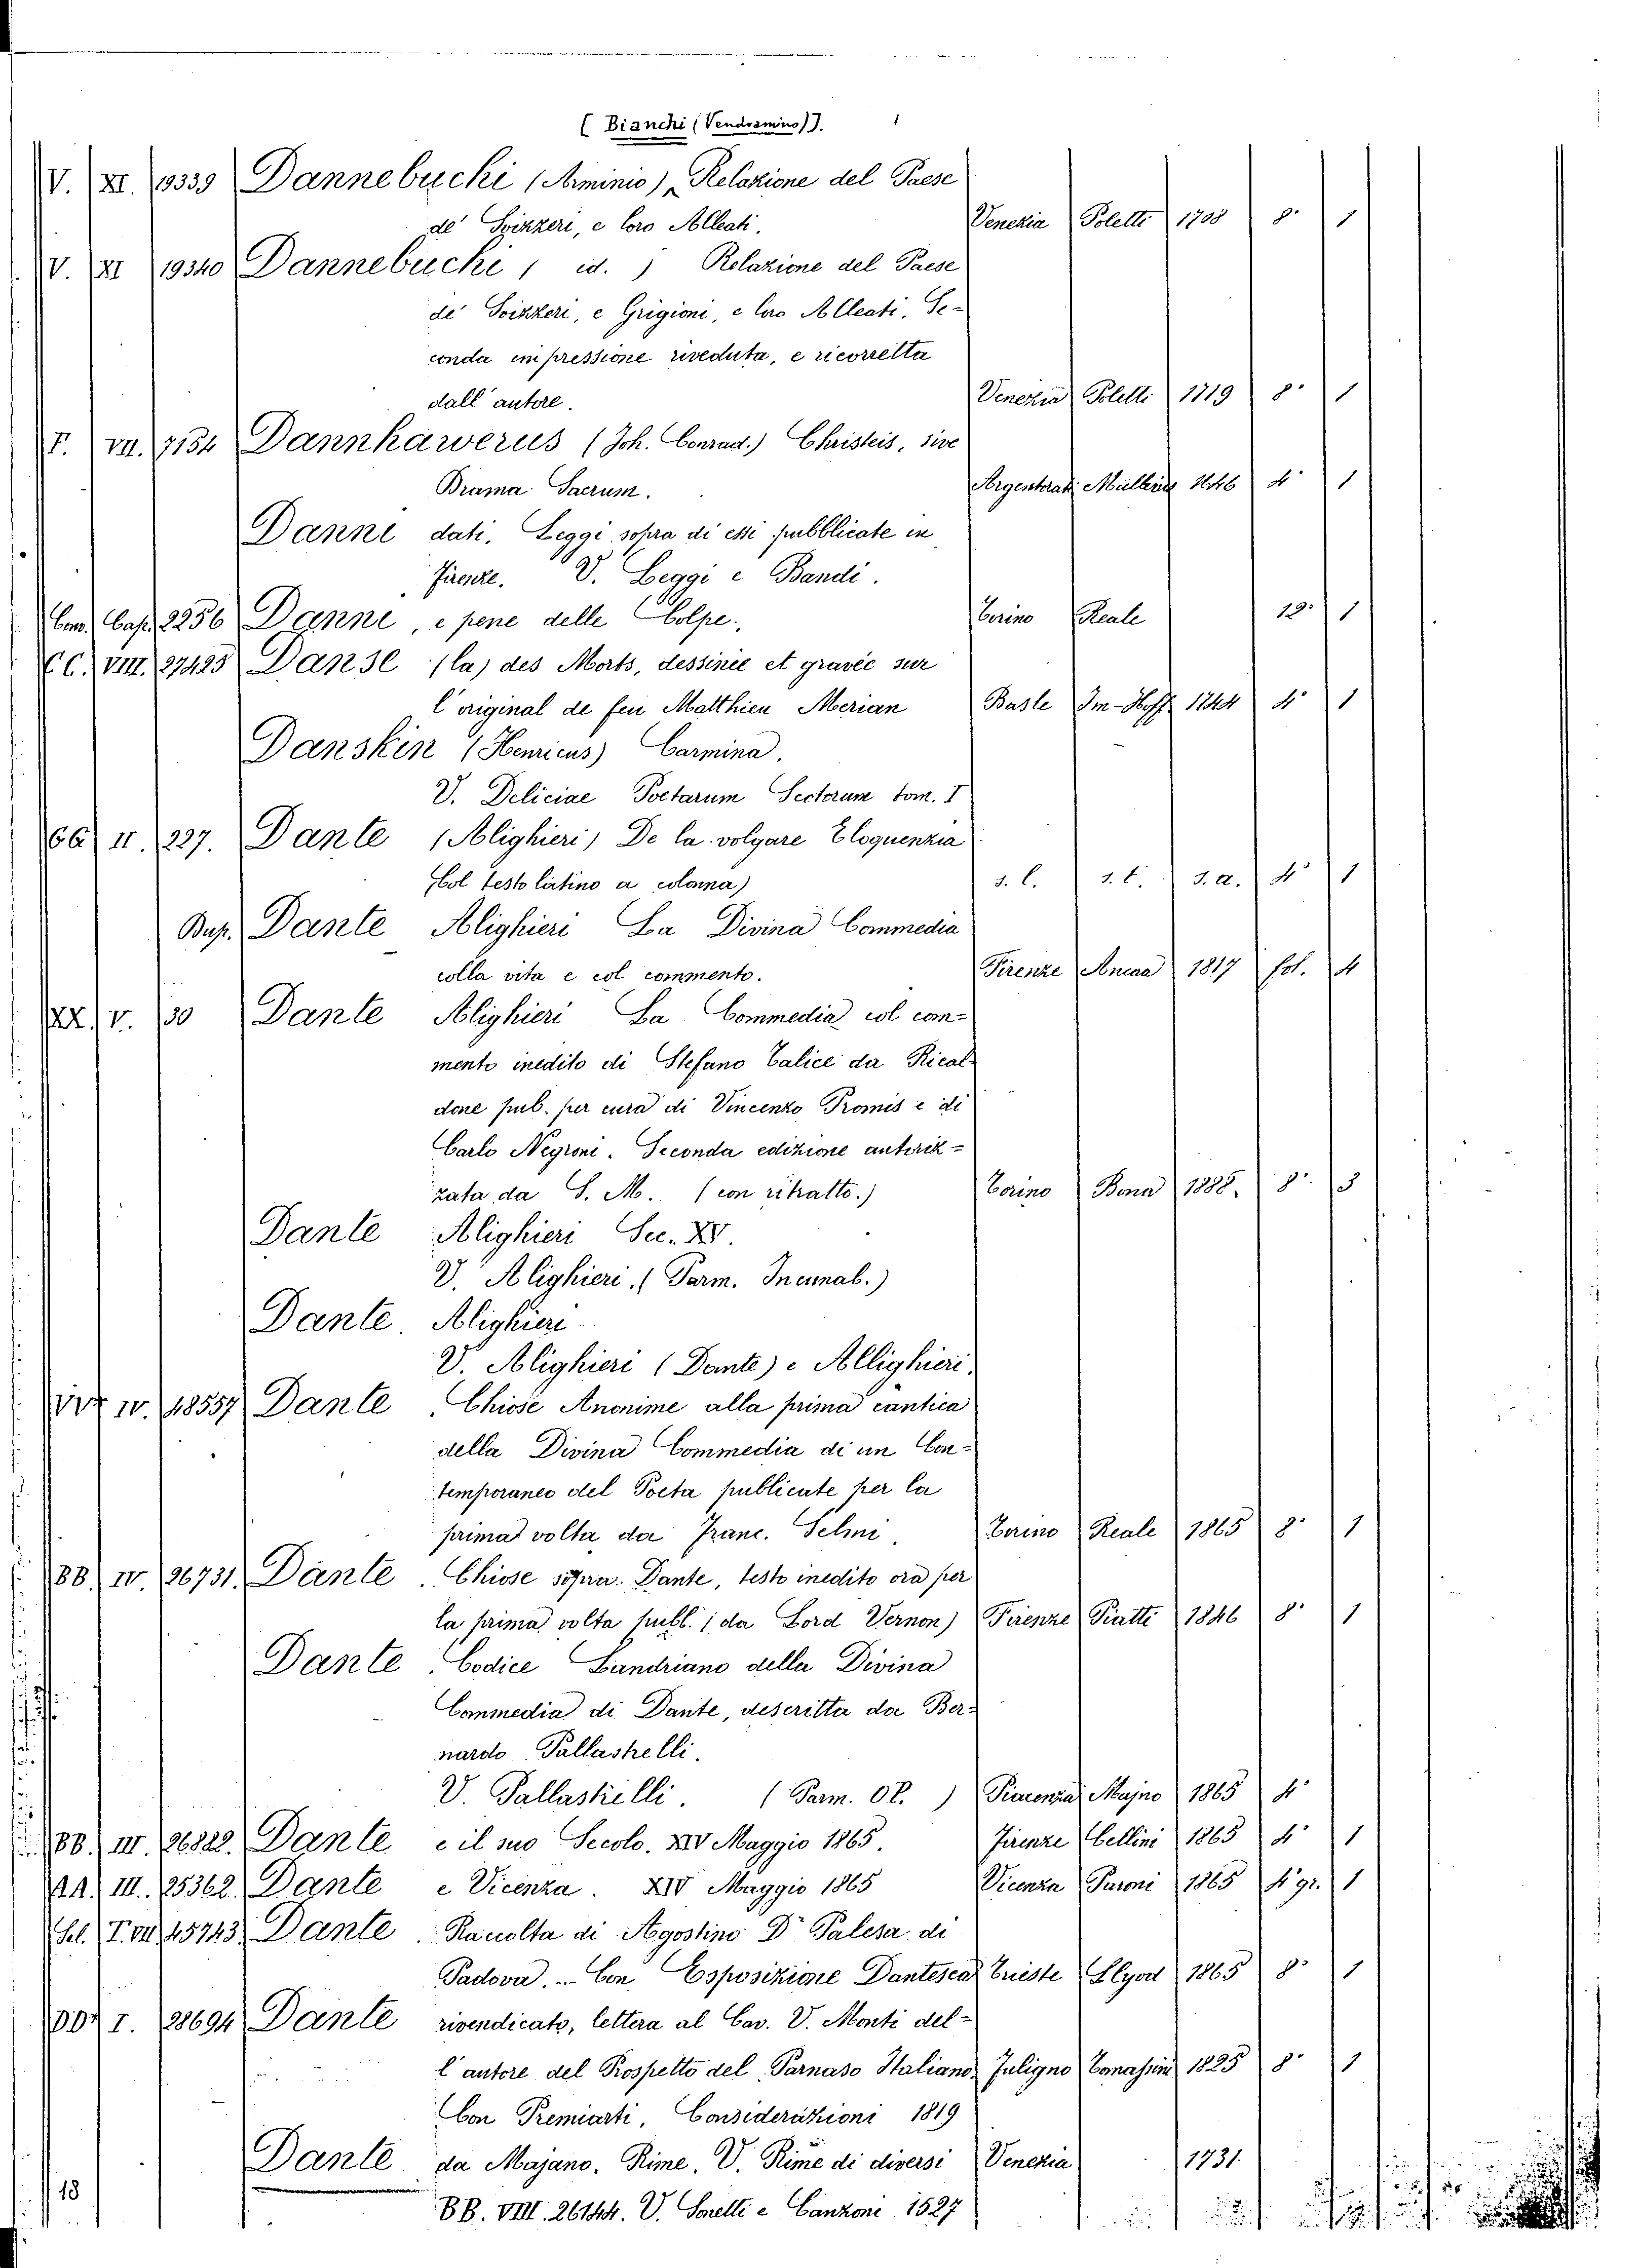 [ Bianchi (Vendramino) ].
V. XI. 19339 Dannebucki (Arminio) Relazione del Paese
de' Svizzeri, e loro Alleati. Venezia Poletti 1708 8° 1
V. XI 19340 Dannebucki ( id. ) Relazione del Paese
de' Svizzeri, e Grigioni, e loro Alleati. Se-
conda impressione riveduta, e ricorretta
dall' autore. Venezia Poletti 1719 8° 1
F. VII. 7154 Dannhawerus (Joh. Conrad.) Christeis, sive
Drama Sacrum. Argentorati Mülleri 1646 4° 1
Danni dati. Leggi sopra di essi pubblicate in
Firenze. V. Leggi e Bandi.
Com. Cap. 2256 Danni, e pene delle Colpe. Torino Reale 12° 1
CC. VIII. 27425 Danse (la) des Morts, dessinée et gravée sur
l'original de feu Matthieu Merian Basle Im-Hoff 1744 4° 1
Danskin (Henricus) Carmina.
V. Deliciae Poetarum Scotorum tom. I
GG II. 227. Dante (Alighieri) De la volgare Eloquenzia
(Col testo latino a colonna) s. l. s. t. s. a. 4° 1
Bup. Dante Alighieri La Divina Commedia
colla vita e col commento. Firenze Ancora 1817 fol. 4
XX. V. 30 Dante Alighieri La Commedia col com-
mento inedito di Stefano Talice da Rical-
done pub. per cura di Vincenzo Promis e di
Carlo Negroni. Seconda edizione autoriz-
zata da S. M. (con ritratto.) Torino Bona 1888. 8° 3
Dante Alighieri Sec. XV.
V. Alighieri. (Parm. Incunab.)
Dante. Alighieri
V. Alighieri (Dante) e Allighieri
IV. 18557 Dante. Chiose Anonime alla prima cantica
della Divina Commedia di un Con-
temporaneo del Poeta publicate per la
prima volta da Franc. Selmi. Torino Reale 1865 8° 1
BB. IV. 26731. Dante. Chiose sopra Dante, testo inedito ora per
la prima volta pubb. (da Lord Vernon) Firenze Piatti 1846 8° 1
Dante. Codice Landriano della Divina
Commedia di Dante, descritta da Ber-
nardo Pallastrelli.
V. Pallastrelli. (Parm. OP. ) Piacenza Majno 1865 4°
BB. III. 26822. Dante e il suo Secolo. XIV Maggio 1865. Firenze Cellini 1865 4° 1
AA. III. 25362 Dante e Vicenza. XIV Maggio 1865 Vicenza Paroni 1865 4° gr. 1
Sel. T. VII 45743 Dante. Raccolta di Agostino Dr Palesa di
Padova. .. Con Esposizione Dantesca Trieste Llyod 1865 8° 1
DD. I. 28694 Dante rivendicato, lettera al Cav. V. Monti del-
l'autore del Prospetto del Parnaso Italiano. Fuligno Tomassini 1825 8° 1
Con Premiarti, Considerazioni 1819
Dante da Majano. Rime. V. Rime di diversi Venezia 1731.
18 BB. VIII. 26144. V. Sonetti e Canzoni 1527